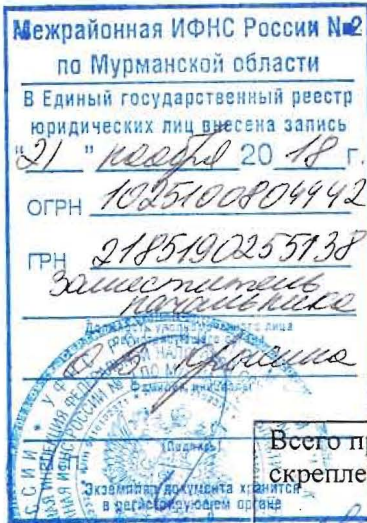 Межрайонная ИФНС России №2
по Мурманской области
В Единый государственный реестр
юридических лиц внесена запись
"21" ноября 2018 г.
ОГРН 1025100804942
ГРН 2185190255138
Заместитель
начальника
Должность уполномоченного лица
регистрирующего органа
Фамилия, инициалы
(Подпись)
Экземпляр документа хранится
в регистрирующем органе
Всего пр
скрепле